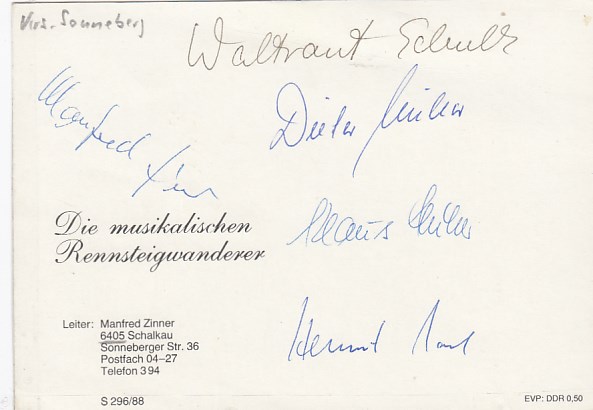 Krs. Sonneberg
Waltraut
Manfred
Dieter
Klaus
Die musikalischen
Rennsteigwanderer
Leiter: Manfred Zinner
6405 Schalkau
Sonneberger Str. 36
Postfach 04–27
Telefon 3 94
S 296/88
EVP: DDR 0,50